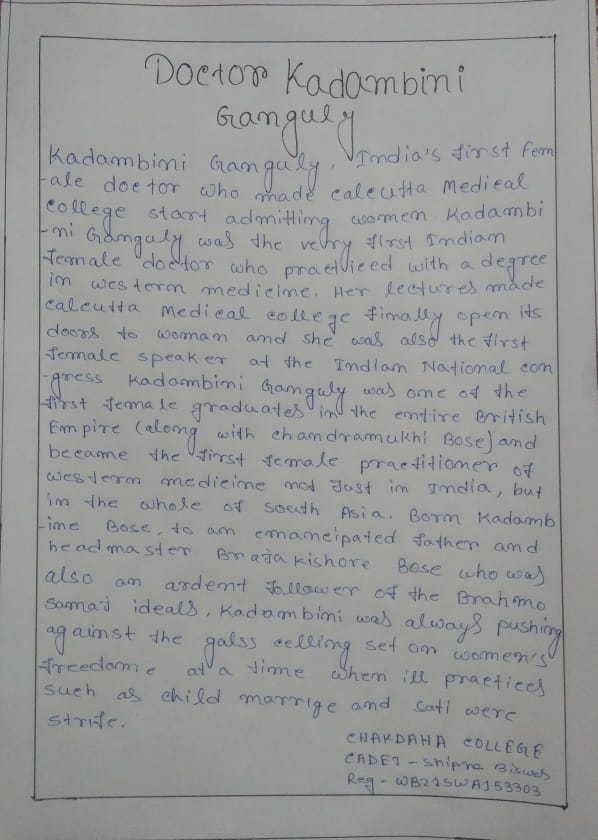 Doctor Kadambini
Ganguly
Kadambini Ganguly, India's first Fem
-ale doctor who made calcutta Medical
college start admitting women Kadambi
-ni Ganguly was the very first Indian
female doctor who practiced with a degree
in western medicine. Her lectures made
calcutta Medical college finally open its
doors to woman and she was also the first
female speaker at the Indian National con
-gress Kadambini Ganguly was one of the
first female graduates in the entire British
Empire (along with chandramukhi Bose) and
became the first female practitioner of
western medicine not Just in India, but
in the whole of South Asia. Born Kadamb
-ine Bose, to an emancipated father and
headmaster Braja Kishore Bose who was
also an ardent follower of the Brahmo
samaj ideals, Kadambini was always pushing
against the galss celling set on women's
freedome at a time when ill practices
such as child marrige and sati were
strife.
CHAKDAHA COLLEGE
CADET - Shipra Biswas
Reg - WB21SWA153303